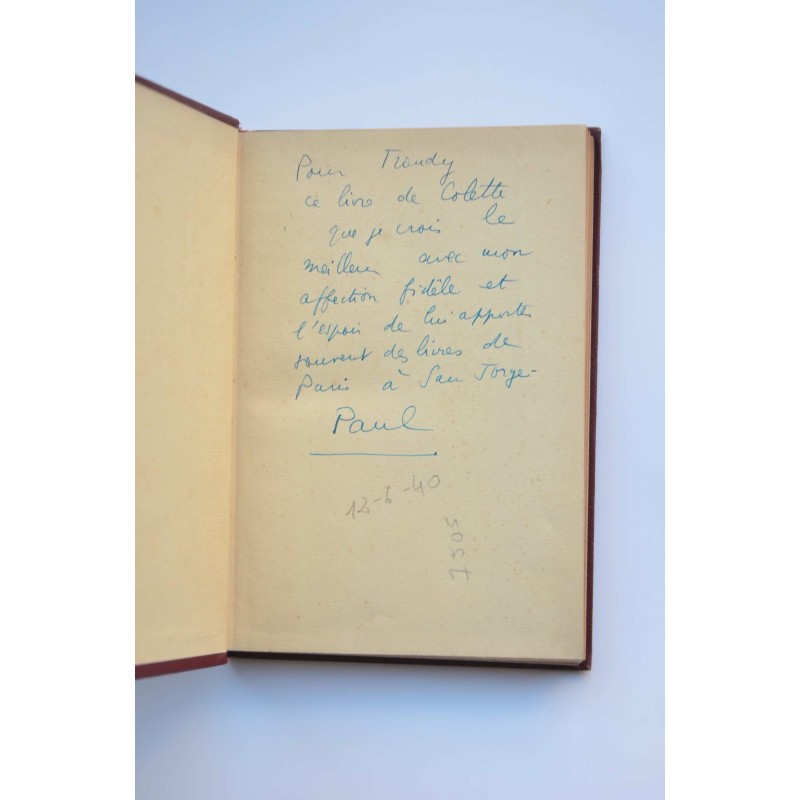 Pour Traudy
ce livre de Colette
que je crois le
meilleur avec mon
affection fidèle et
l'espoir de lui apporter
souvent des livres de
Paris à San Jorge-
Paul
12-6-40